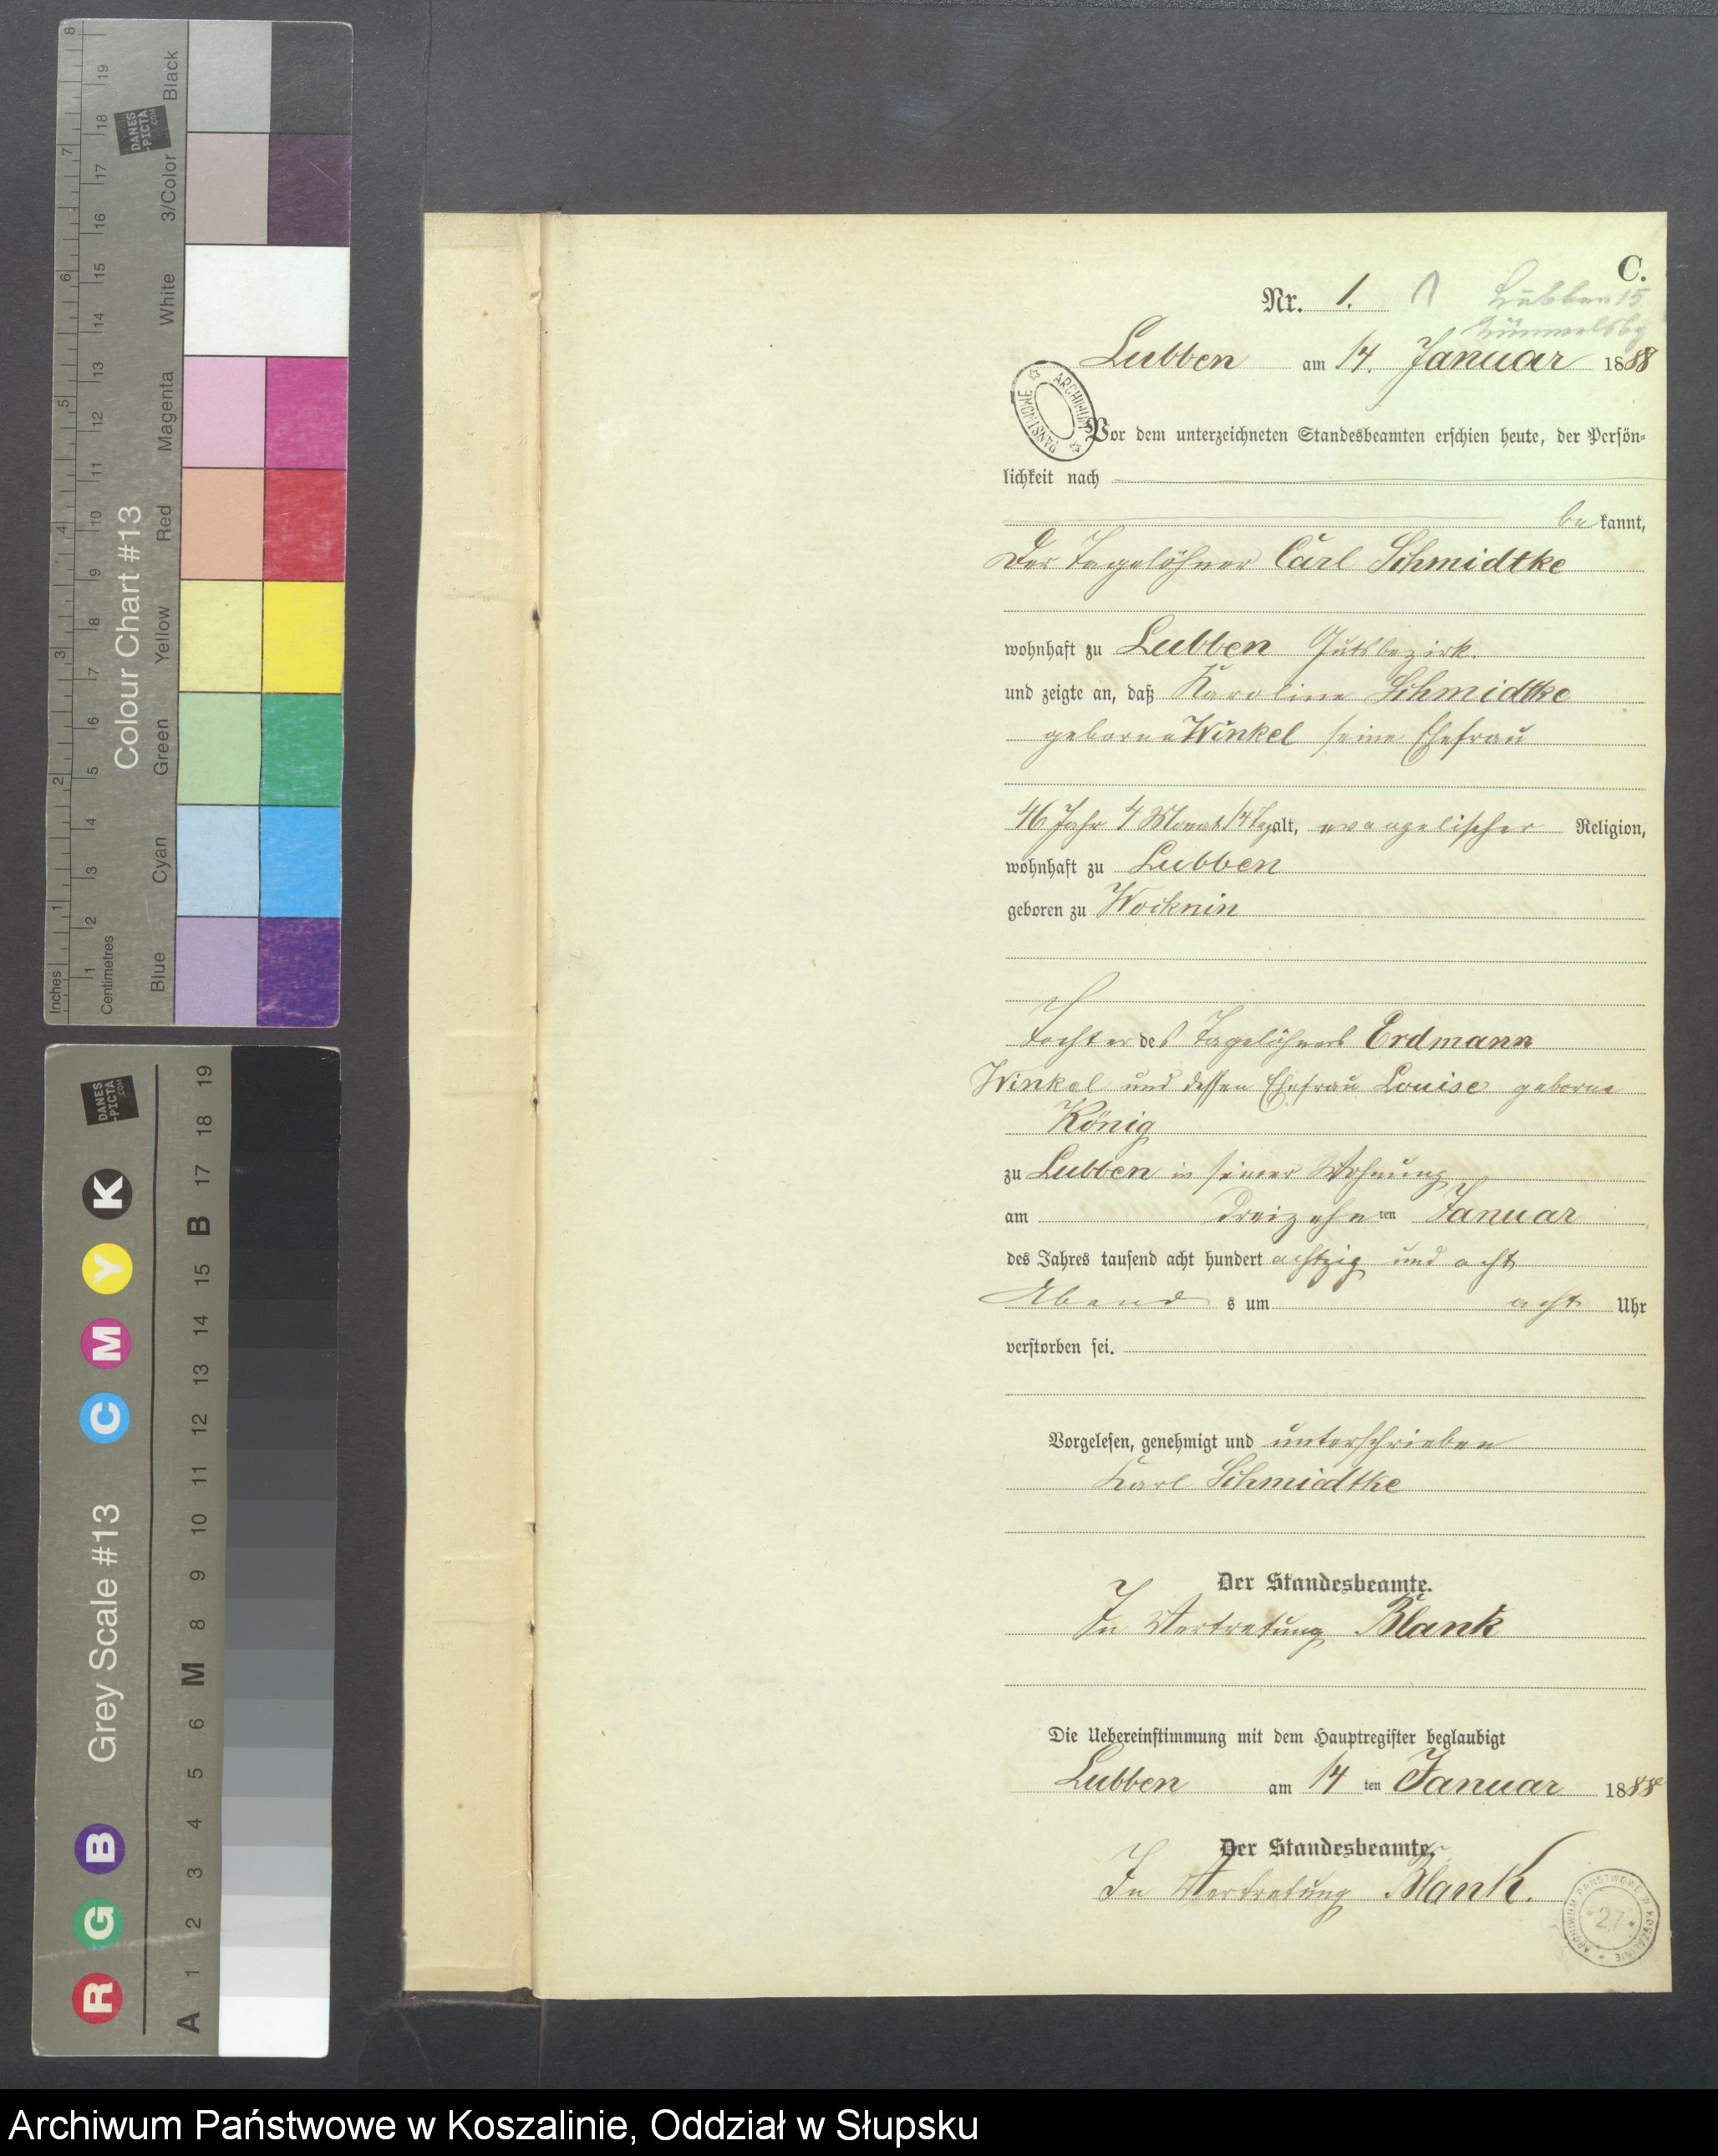 C.
Nr. 1.
Lübben 15
Rummelsbg
Lubben am 14. Januar 1888
ARCHIWUM PAŃSTWOWE
Vor dem unterzeichneten Standesbeamten erschien heute, der Persön-
lichkeit nach
bekannt,
Der Tagelöhner Carl Schmidtke
wohnhaft zu Lubben Gutsbezirk.
und zeigte an, daß Karoline Schmidtke
geborne Winkel seine Ehefrau
46 Jahr 4 Monat 14 Tag alt, evangelischer Religion,
wohnhaft zu Lubben
geboren zu Wocknin
Tochter des Tagelöhners Erdmann
Winkel und dessen Ehefrau Louise geborne
König
zu Lubben in seiner Wohnung
am dreizehnten Januar
des Jahres tausend acht hundert achtzig und acht
Abends um acht Uhr
verstorben sei.
Vorgelesen, genehmigt und unterschrieben
Karl Schmidtke
Der Standesbeamte.
In Vertretung Blank
Die Uebereinstimmung mit dem Hauptregister beglaubigt
Lubben am 14ten Januar 1888
Der Standesbeamte.
In Vertretung Blank.
ARCHIWUM PAŃSTWOWE W KOSZALINIE
27
Colour Chart #13
Blue Cyan Green Yellow Red Magenta White 3/Color Black
Inches 1 2 3 4 5 6 7 8
Centimetres 1 2 3 4 5 6 7 8 9 10 11 12 13 14 15 16 17 18 19
DANES-PICTA.COM
Grey Scale #13
R G B C M Y K
A 1 2 3 4 5 6 M 8 9 10 11 12 13 14 15 B 17 18 19
DANES-PICTA.COM
Archiwum Państwowe w Koszalinie, Oddział w Słupsku